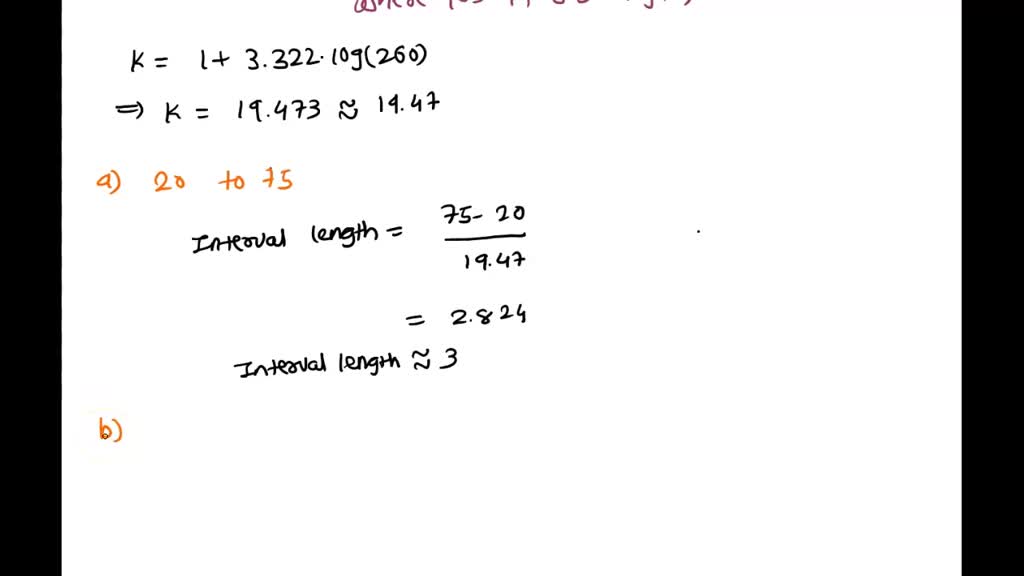 K = 1 + 3.322·log(260)
⇒ K = 19.473 ≈ 19.47
a) 20 to 75
Interval length = 75 - 20
19.47
= 2.824
Interval length ≈ 3
b)